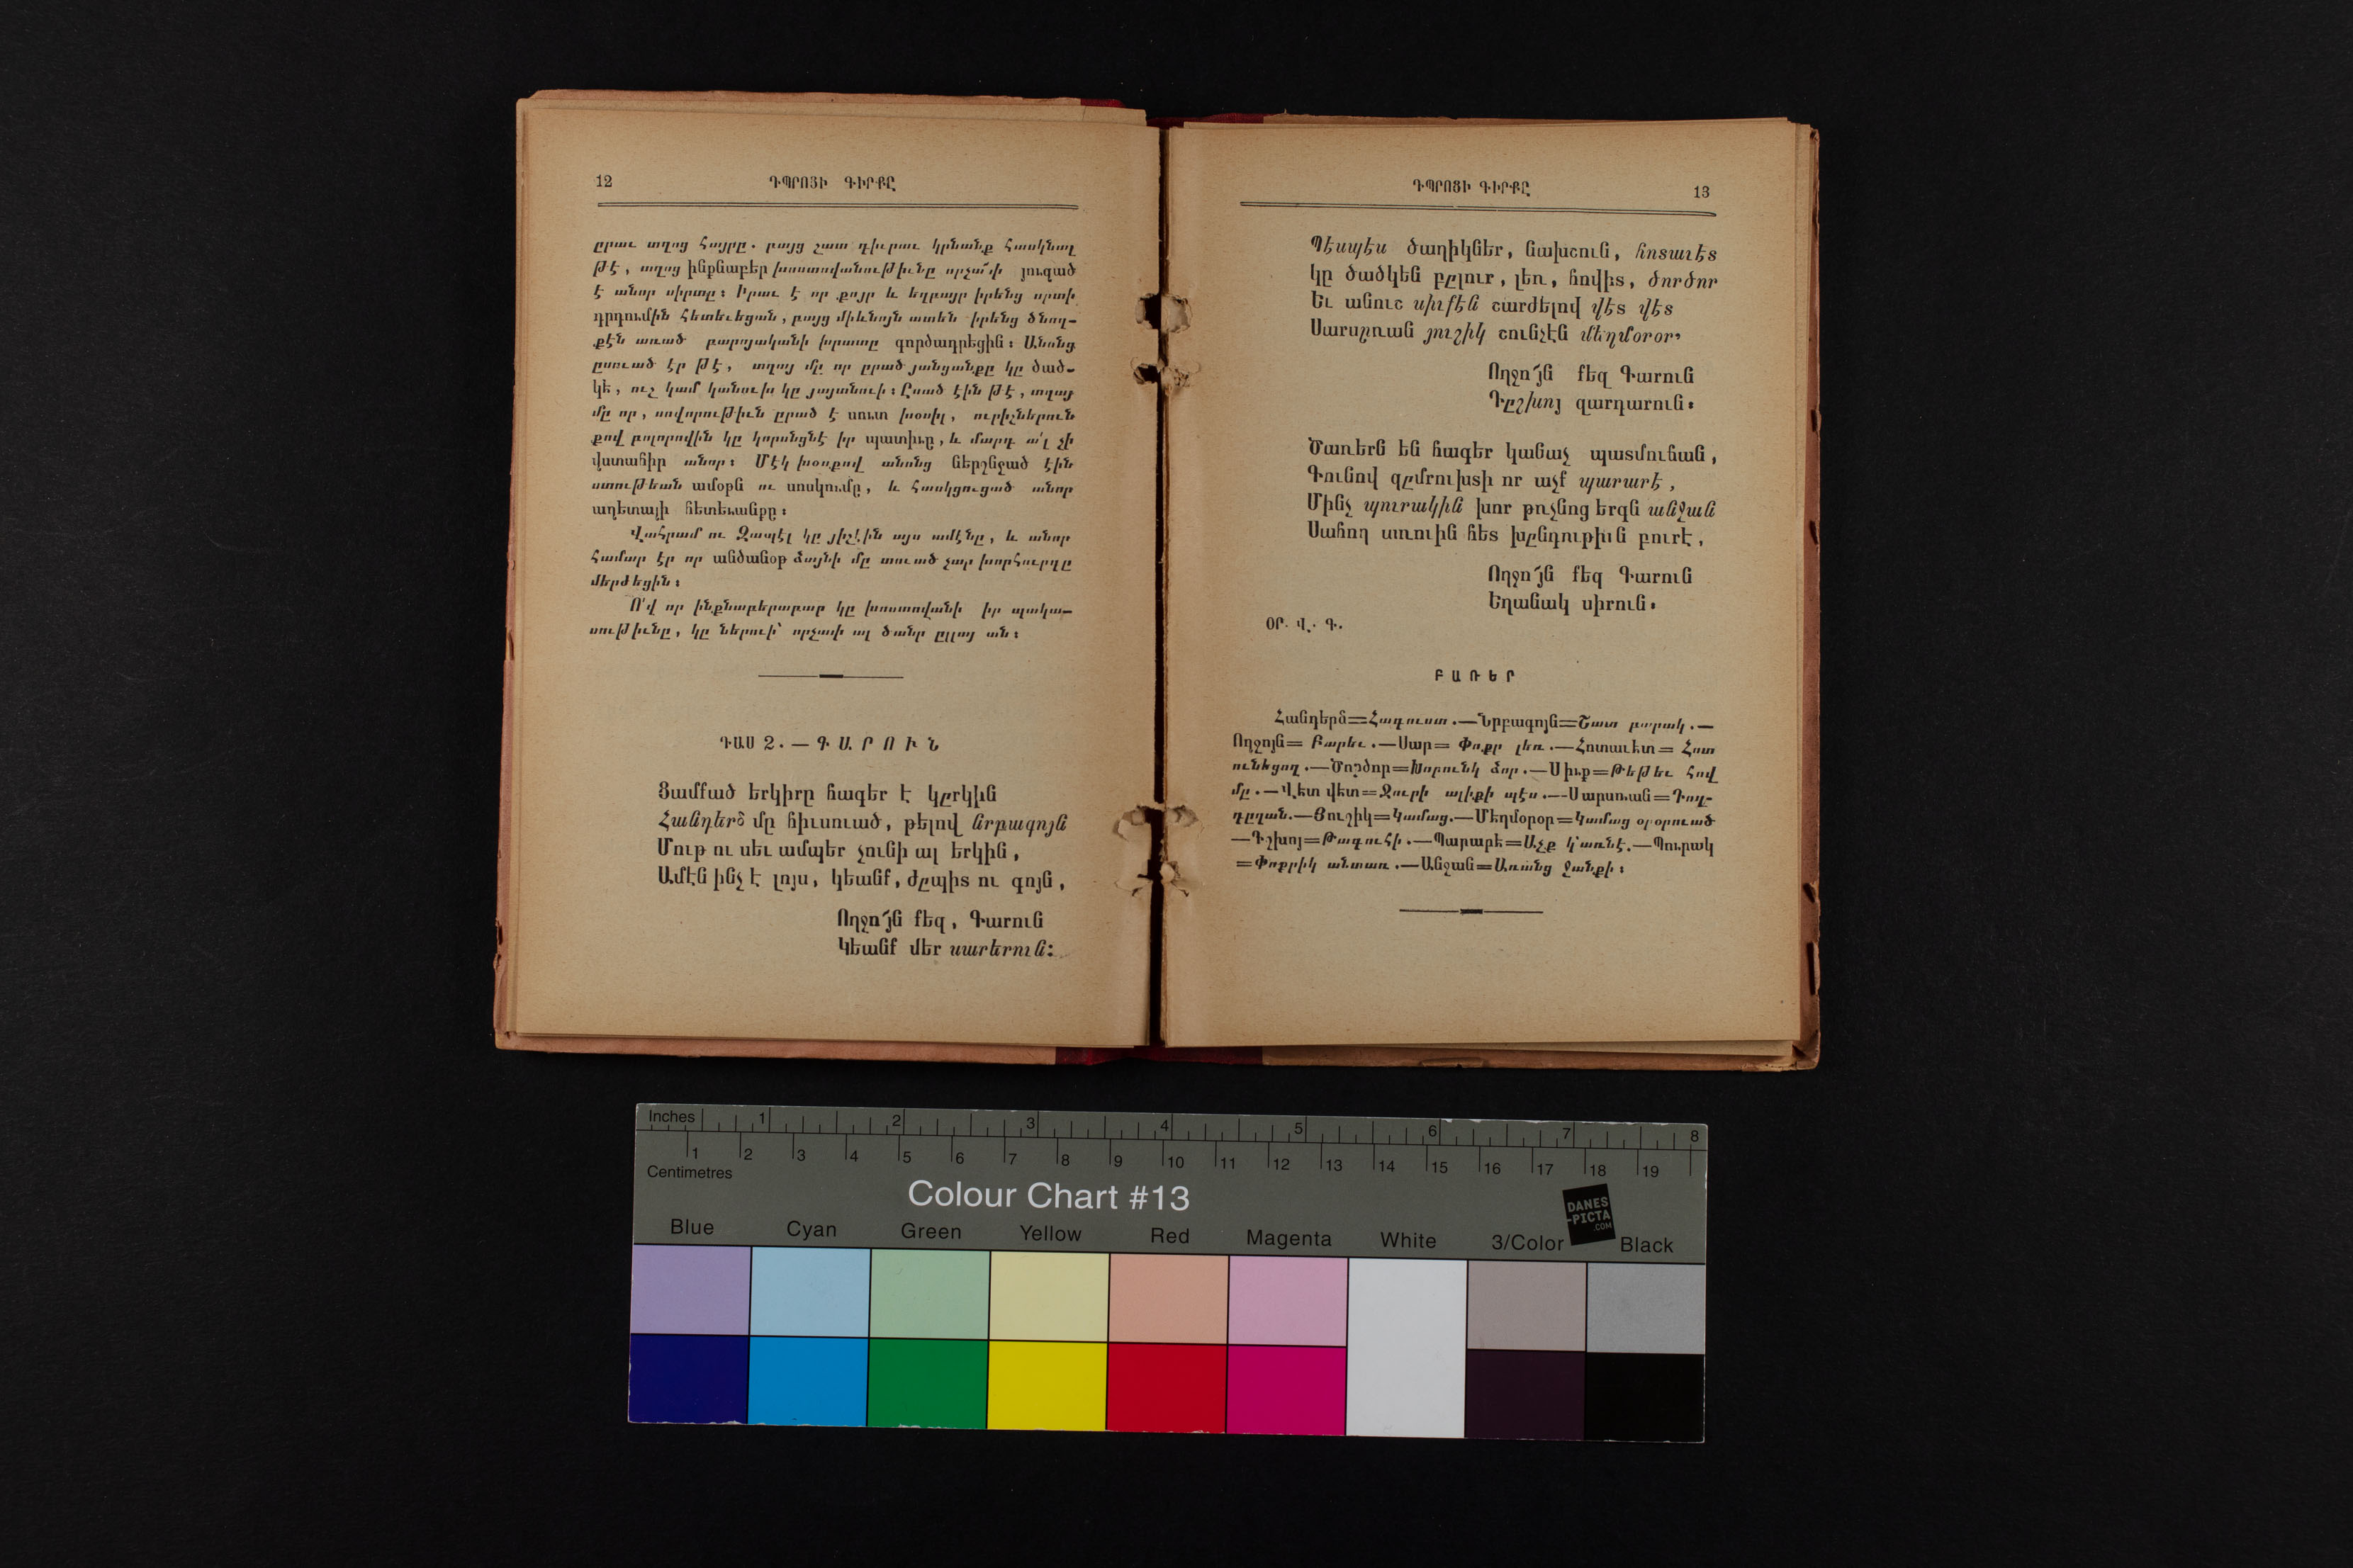 12
ԴՊՐՈՑԻ ԳԻՐՔԸ
ըրաւ տղոց հայրը. բայց շատ դիւրաւ կրնանք հասկնալ
թէ, տղոց ինքնաբեր խոստովանութիւնը որչա՜փ յուզած
է անոր սիրտը։ Իրաւ է որ քոյր և եղբայր իրենց սրտի
դրդումին հետեւեցան, բայց միևնոյն ատեն իրենց ծնող-
քէն առած բարոյականի խրատը գործադրեցին։ Անոնց
ըսուած էր թէ, տղայ մը որ ըրած յանցանքը կը ծած-
կէ, ուշ կամ կանուխ կը յայտնուի։ Ըսած էին թէ, տղայ
մը որ, սովորութիւն ըրած է սուտ խօսիլ, ուրիշներուն
քով բոլորովին կը կորսնցնէ իր պատիւը, և մարդ ա՛լ չի
վստահիր անոր։ Մէկ խօսքով անոնց ներշնչած էին
ստութեան ամօթն ու սոսկումը, և հասկցուցած անոր
աղետալի հետեւանքը։
Վահրամ ու Զապէլ կը յիշէին այս ամէնը, և անոր
համար էր որ անծանօթ ձայնի մը տուած չար խորհուրդը
մերժեցին։
Ո՛վ որ ինքնաբերաբար կը խոստովանի իր պակա-
սութիւնը, կը ներուի՝ որչափ ալ ծանր ըլլայ ան։
ԴԱՍ 2. — ԳԱՐՈՒՆ
Ցամքած երկիրը հագեր է կըրկին
Հանդերձ մը հիւսուած, թելով նրբագոյն
Մութ ու սեւ ամպեր չունի ալ երկին,
Ամէն ինչ է լոյս, կեանք, ժըպիտ ու գոյն,
Ողջո՜յն քեզ, Գարուն
Կեանք մեր սարերուն։
ԴՊՐՈՑԻ ԳԻՐՔԸ
13
Պէսպէս ծաղիկներ, նախշուն, հոտաւէտ
կը ծածկեն բըլուր, լեռ, հովիտ, ծործոր
Եւ անուշ սիւքէն շարժելով վէտ վէտ
Սարսըռան յուշիկ շունչէն մեղմօրօր,
Ողջո՜յն քեզ Գարուն
Դըշխոյ զարդարուն։
Ծառերն են հագեր կանաչ պատմուճան,
Գունով զըմրուխտի որ աչք պարարէ,
Մինչ պուրակին խոր թռչնոց երգն անջան
Սահող առուին հետ խընդութիւն բուրէ,
Ողջո՜յն քեզ Գարուն
Եղանակ սիրուն։
ՕՐ. Վ. Գ.
ԲԱՌԵՐ
Հանդերձ=Հագուստ.—Նրբագոյն=Շատ բարակ.—
Ողջոյն= Բարեւ.—Սար= Փոքր լեռ.—Հոտաւետ= Հոտ
ունեցող.—Ծործոր=Խորունկ ձոր.—Սիւք=Թեթեւ հով
մը.—Վէտ վէտ=Ջուրի ալիքի պէս.—Սարսռան=Դող-
դըղան.—Յուշիկ=Կամաց.—Մեղմօրօր=Կամաց օրօրուած
—Դշխոյ=Թագուհի.—Պարարէ=Աչք կ՚առնէ.—Պուրակ
=Փոքրիկ անտառ.—Անջան=Առանց ջանքի։
Inches 1 2 3 4 5 6 7 8
1 2 3 4 5 6 7 8 9 10 11 12 13 14 15 16 17 18 19
Centimetres
Colour Chart #13
DANES
-PICTA
.COM
Blue Cyan Green Yellow Red Magenta White 3/Color Black